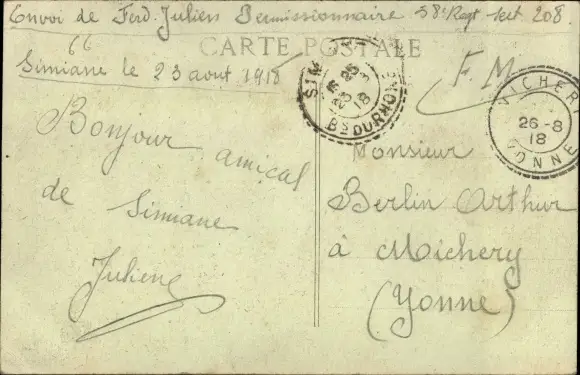 Envoi de Ferd. Julien Permissionnaire 58e Regt sect 208.
CARTE POSTALE
Simiane le 23 aout 1918
F. M.
SIM
25
23
18
Bs DU RHONE
MICHERY
26-8
18
YONNE
Bonjour amical
de Simiane
Julien
Monsieur
Berlin Arthur
à Michery
(Yonne)